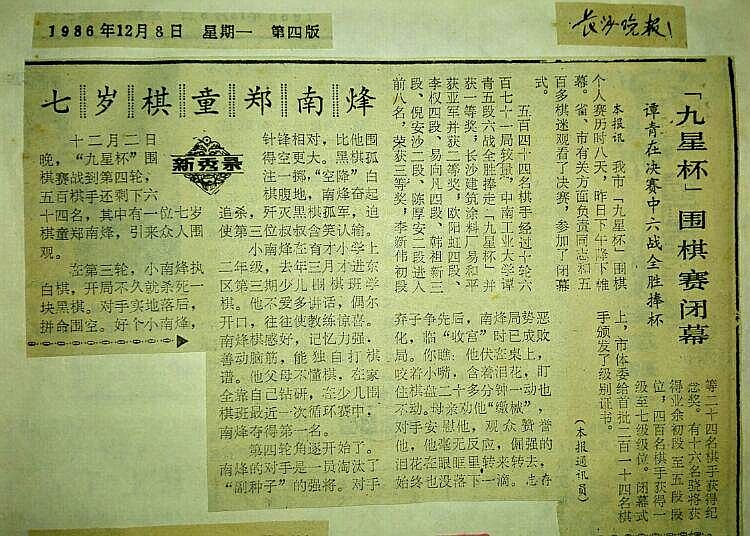 1986年12月8日 星期一 第四版
长沙晚报
七岁棋童郑南烽
新秀录
十二月二日
晚，“九星杯”围
棋赛战到第四轮，
五百棋手还剩下六
十四名，其中有一位七岁
棋童郑南烽，引来众人围
观。
在第三轮，小南烽执
白棋，开局不久就杀死一
块黑棋。对手实地落后，
拼命围空。好个小南烽，
针锋相对，比他围
得空更大。黑棋孤
注一掷，“空降”白
棋腹地，南烽奋起
追杀，歼灭黑棋孤军，迫
使第三位叔叔含笑认输。
小南烽在育才小学上
二年级，去年三月才进东
区第三期少儿围棋班学
棋。他不爱多讲话，偶尔
开口，往往使教练惊喜。
南烽棋感好，记忆力强，
善动脑筋，能独自打棋
谱。他父母不懂棋，在家
全靠自己钻研，在少儿围
棋班最近一次循环赛中，
南烽夺得第一名。
第四轮角逐开始了。
南烽的对手是一员淘汰了
“副种子”的强将。对手
弃子争先后，南烽局势恶
化，临“收官”时已成败
局。你瞧：他伏在桌上，
咬着小嘴，含着泪花，盯
住棋盘二十多分钟一动也
不动。母亲劝他“缴械”，
对手安慰他，观众赞誉
他，他毫无反应，倔强的
泪花在眼眶里转来转去，
始终也没落下一滴。 志奇
「九星杯」围棋赛闭幕
谭青在决赛中六战全胜捧杯
本报讯 我市「九星杯」围棋
个人赛历时八天，昨日下午降下帷
幕。省、市有关方面负责同志和五
百多棋迷观看了决赛，参加了闭幕
式。
五百四十四名棋手经过十轮六
百七十一局较量，中南工业大学谭
青五段六战全胜捧走「九星杯」并
获一等奖，长沙建筑涂料厂易和平
获亚军并获二等奖，欧阳虹四段、
李权四段、易向凡四段、韩祖新三
段、倪安沙二段、陈厚安二段进入
前八名，荣获三等奖，李新伟初段
等二十四名棋手获得纪
念奖。有十六名骁将获
得业余初段至五段段
位，四百名棋手获得一
级至七级级位。闭幕式
上，市体委给首批二百一十四名棋
手颁发了级别证书。
（本报通讯员）